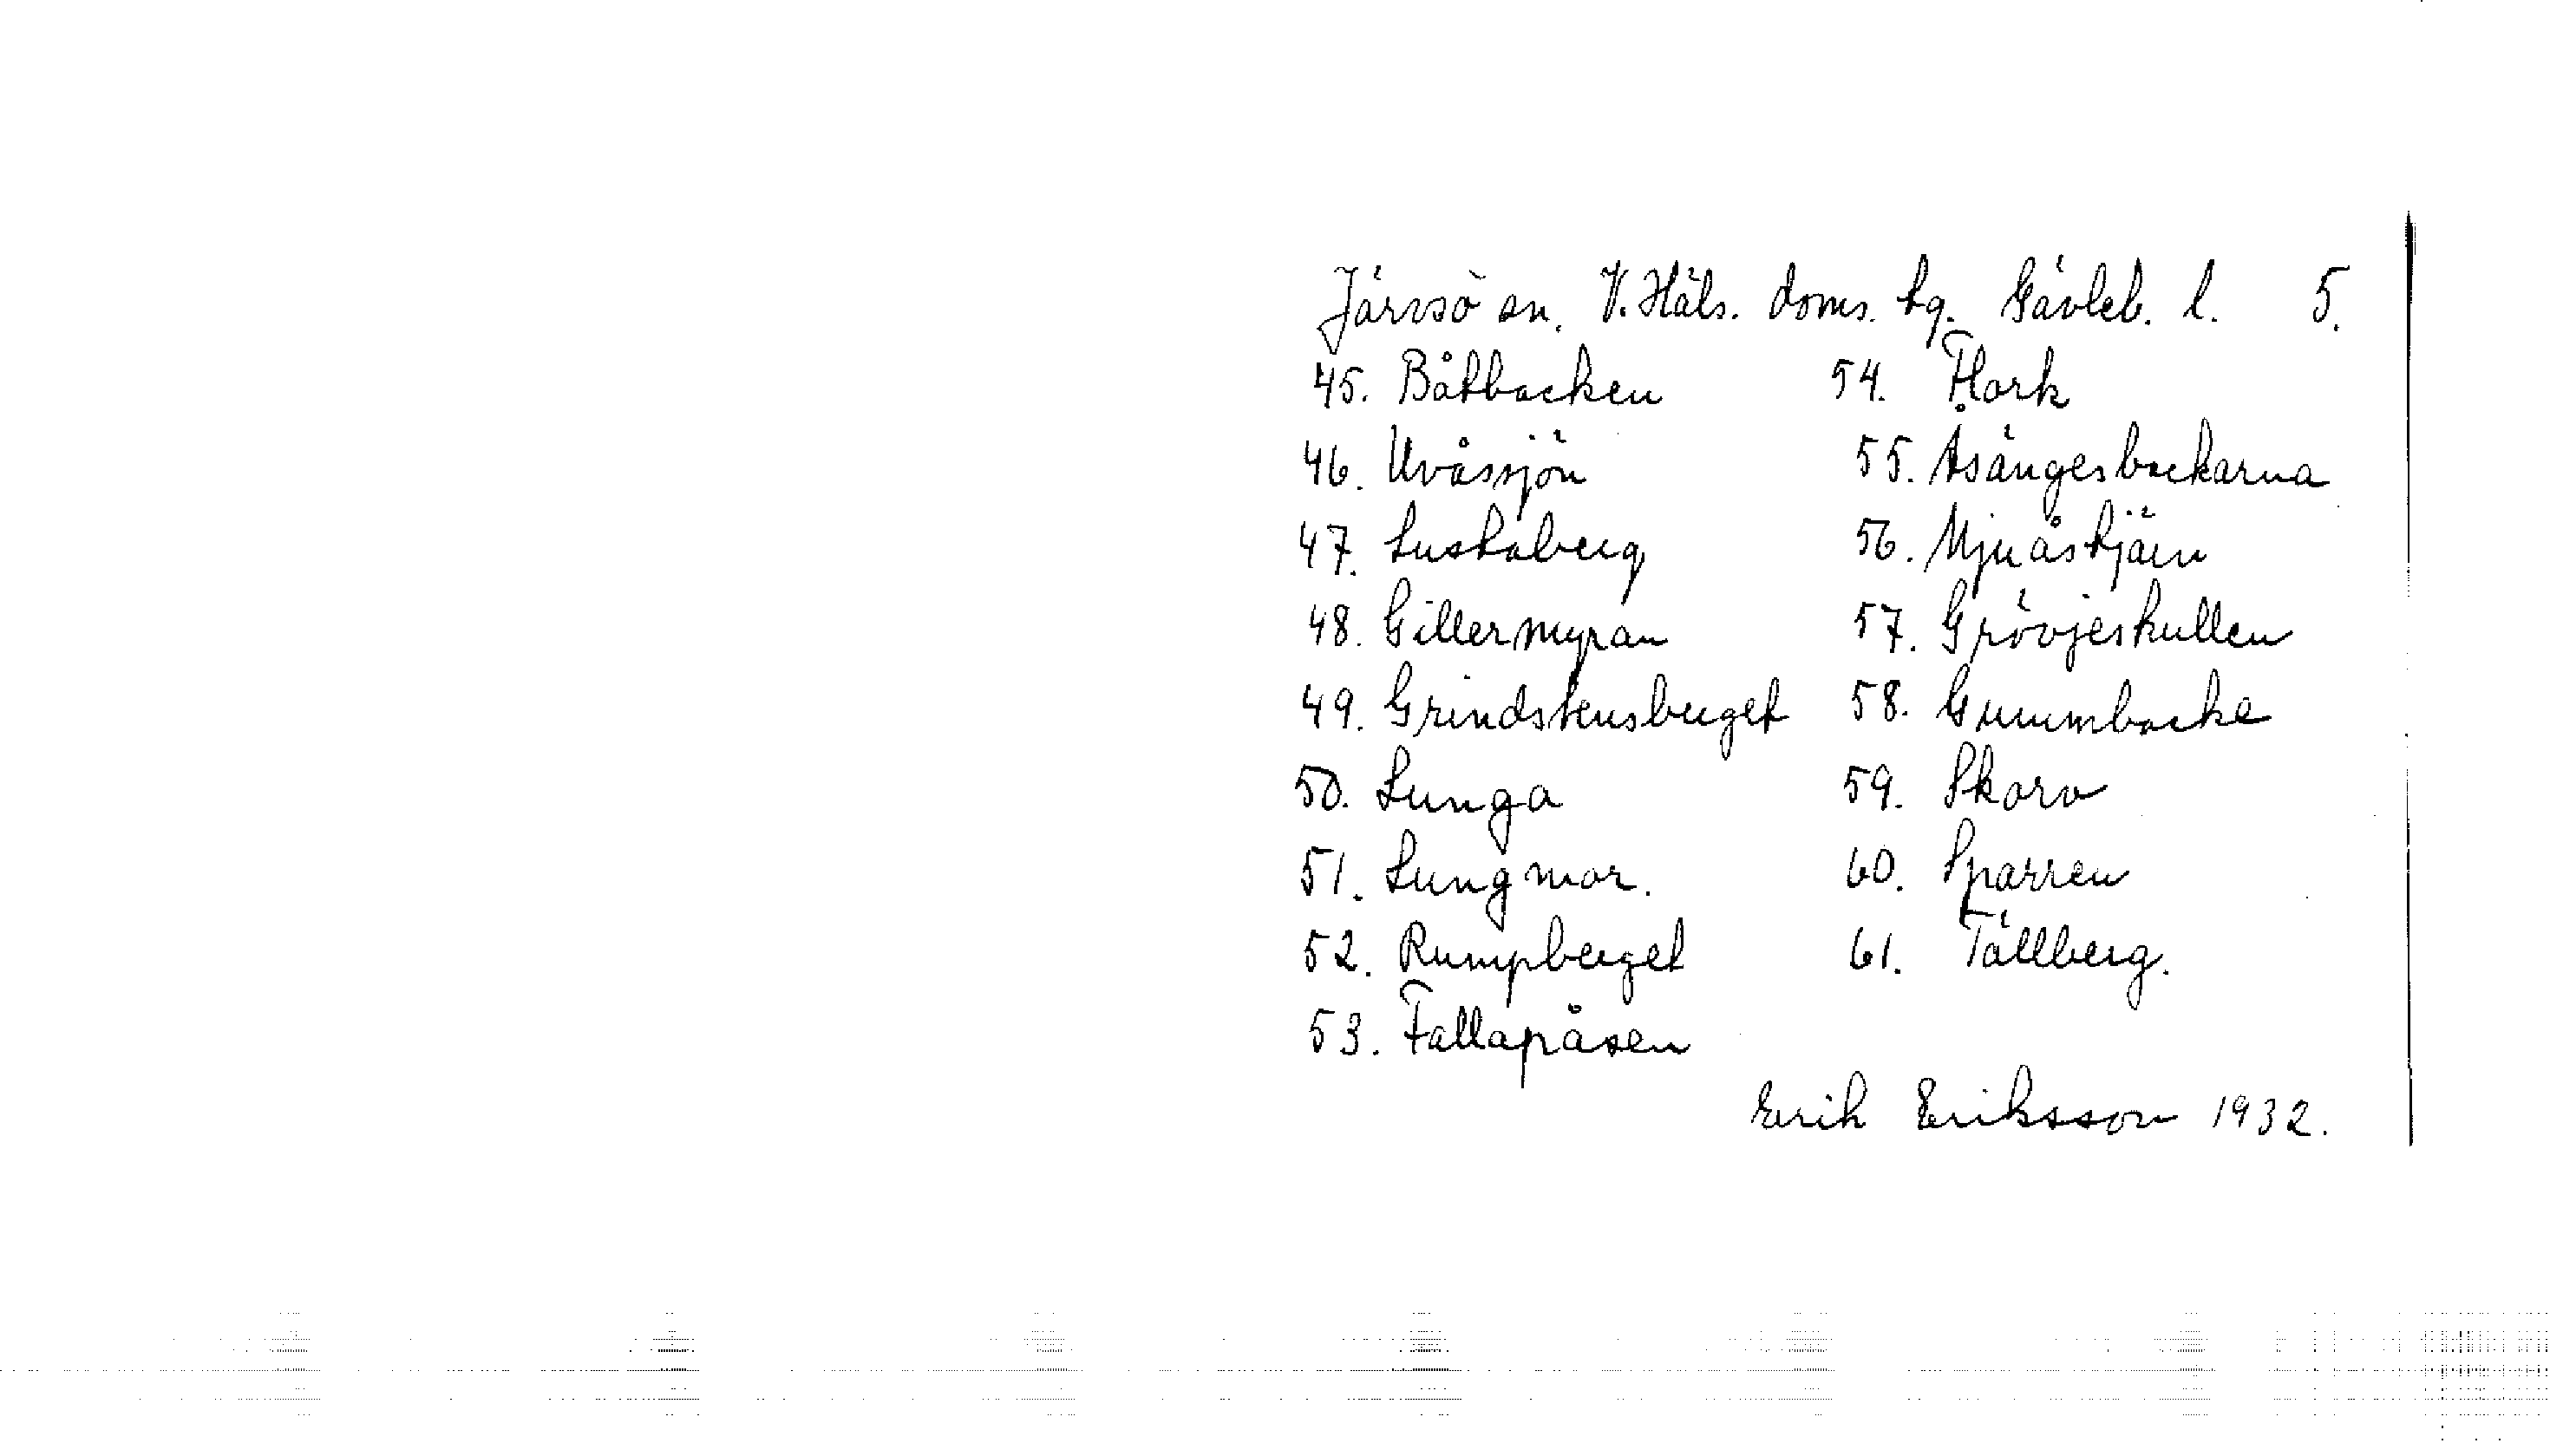 Järvsö sn. V. Häls. doms. tg. Gävleb. l. 5.
45. Båtbacken
46. Uvåssjön
47. Lustaberg
48. Gillermyran
49. Grindstensberget
50. Lunga
51. Lungmor.
52. Rumpberget
53. Fallapåsen
54. Flark
55. Åsängesbackarna
56. Mjuåstjärn
57. Grövjeskullen
58. Gummbacke
59. Skorv
60. Sparren
61. Tällberg.
Erik Eriksson 1932.